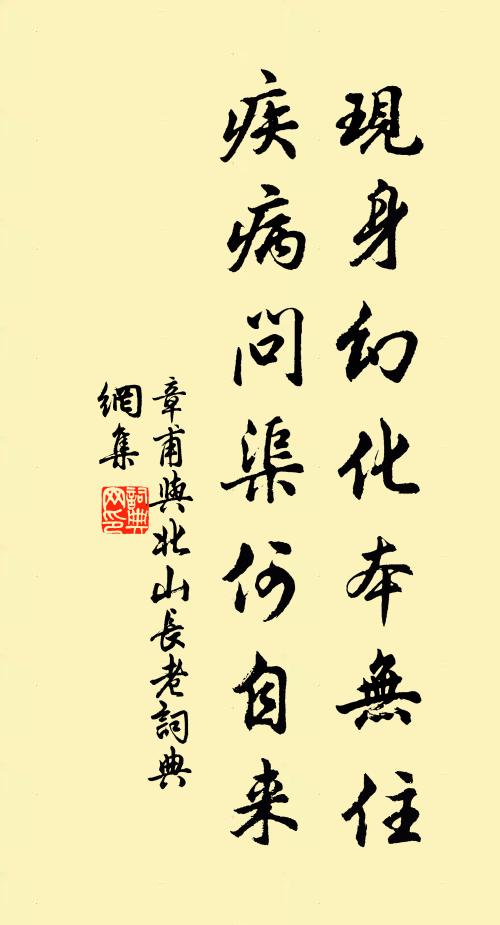 現身幻化本無住
疾病問渠何自来
章甫與北山長老詞典
網集
詞典
网印